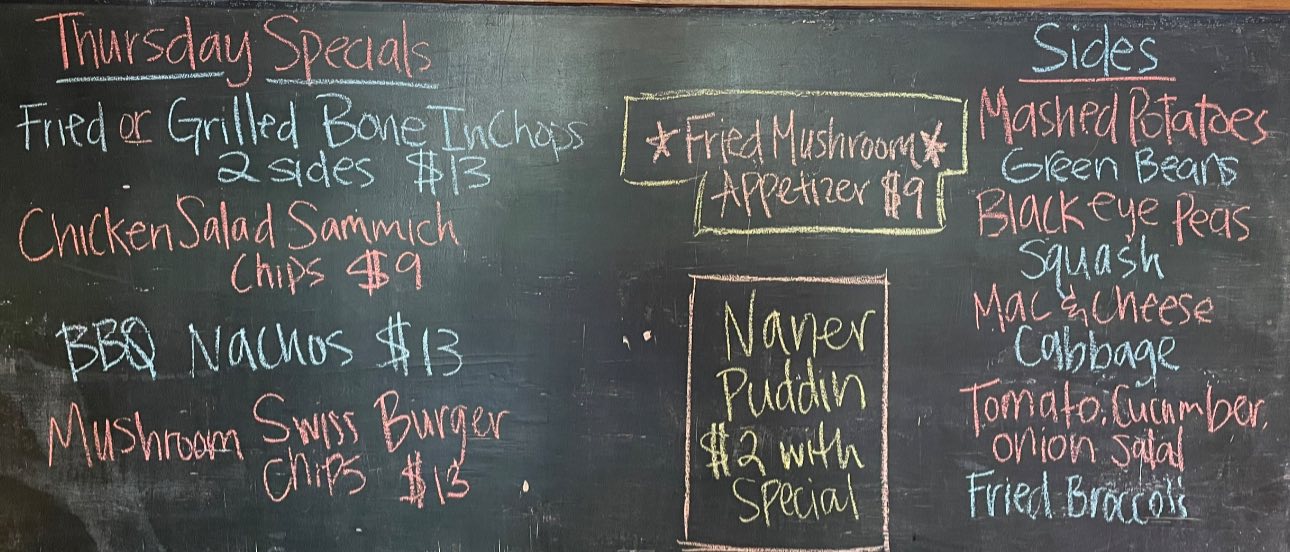 Thursday Specials
Fried or Grilled Bone In Chops
2 sides $13
Chicken Salad Sammich
Chips $9
BBQ Nachos $13
Mushroom Swiss Burger
Chips $13
*Fried Mushroom*
Appetizer $9
Naner
Puddin
$2 with
Special
Sides
Mashed Potatoes
Green Beans
Black eye Peas
Squash
Mac & Cheese
Cabbage
Tomato, Cucumber,
onion salad
Fried Broccoli